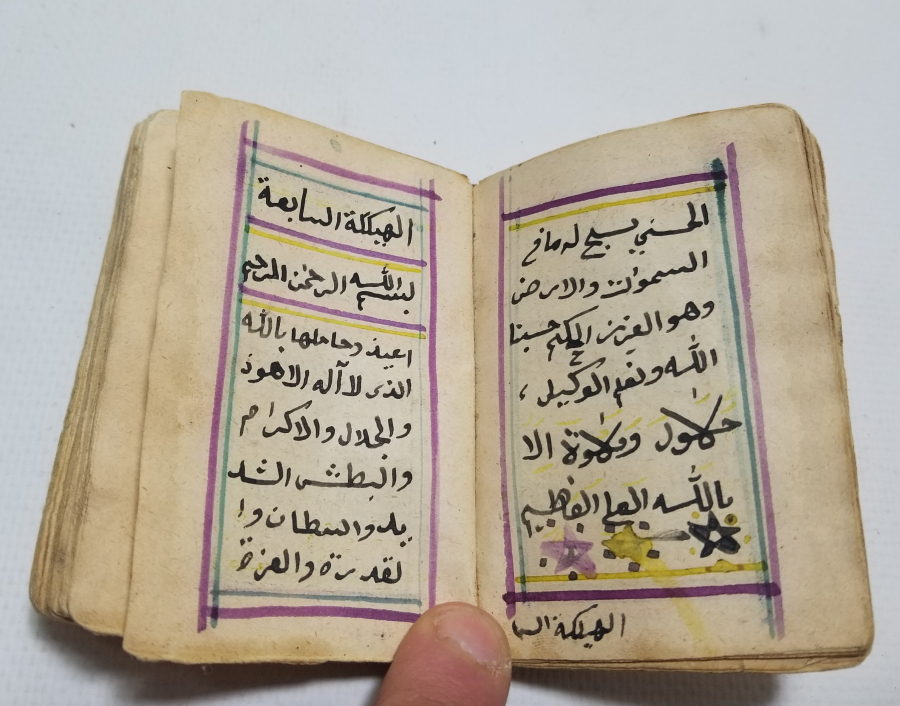 الحسنى يسبح له ما في
السموات والارض
وهو العزيز الحكيم حسبنا
الله ونعم الوكيل ،
لاحول ولاقوة الا
بالله العلي العظيم
الهيكلة السا
الهيكلة السابعة
بسم الله الرحمن الرحيم
اعيذ وحاملها بالله
الذى لا آله الا هوذ
والجلال والاكرام
والبطش الشد
يد والسطان وا
لقدرة والعزة